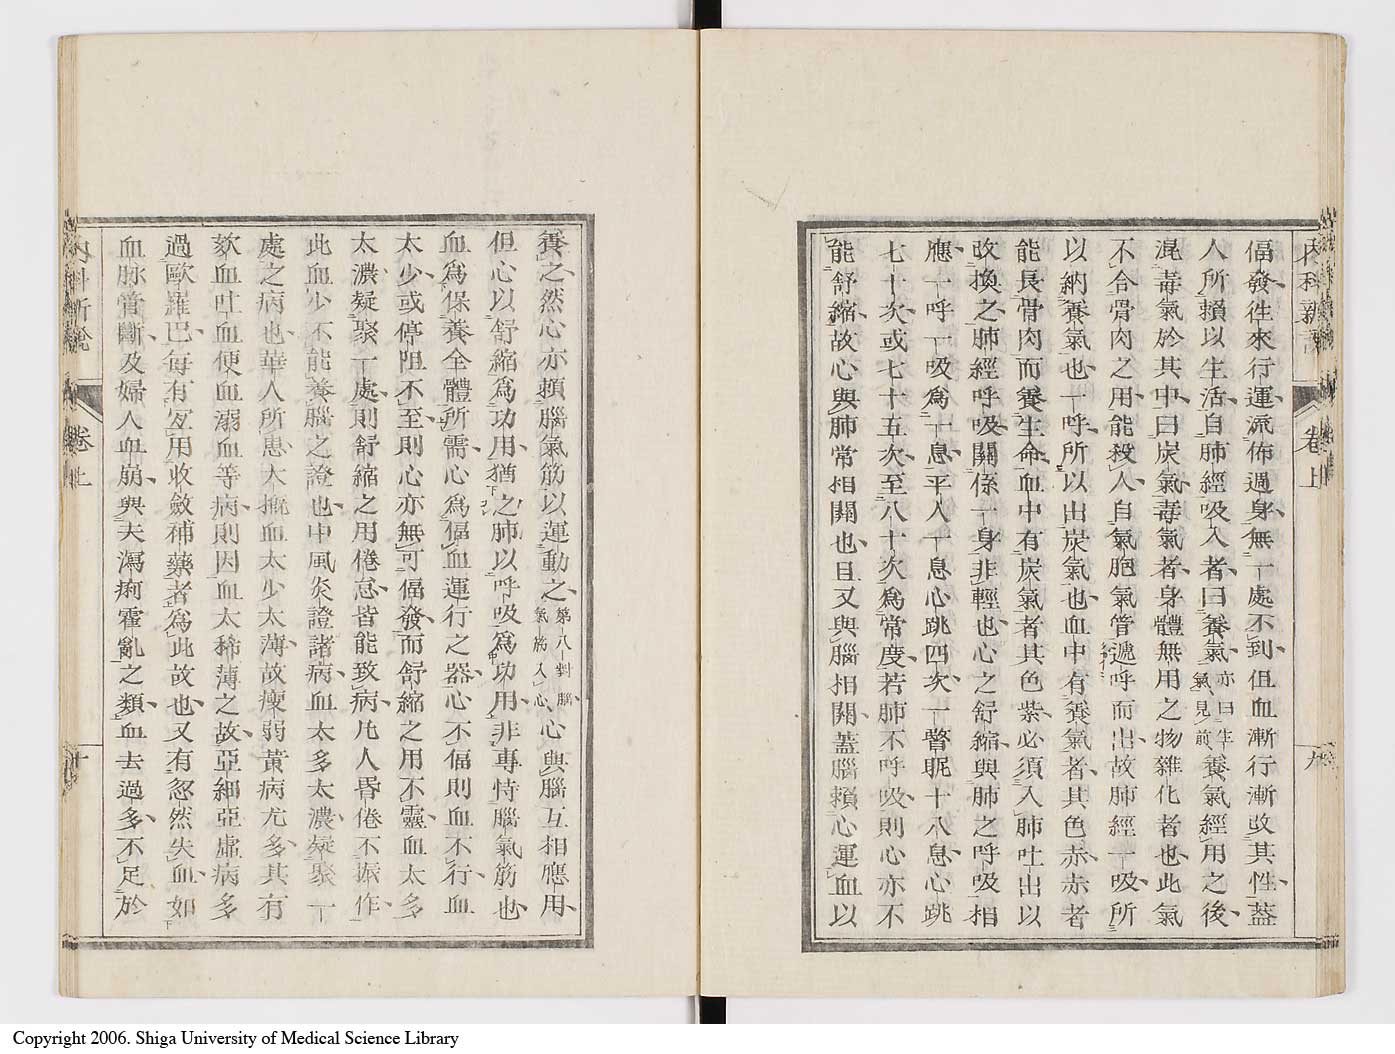 內科新說 卷上 九
偪發往來行運流佈過身無一處不到但血漸行漸改其性蓋
人所賴以生活自肺經吸入者曰養氣亦曰生氣見前養氣經用之後
混毒氣於其中曰炭氣毒氣者身體無用之物雜化者也此氣
不合骨肉之用能殺人自氣胞氣管遞呼而出故肺經一吸所
以納養氣也一呼所以出炭氣也血中有養氣者其色赤赤者
能長骨肉而養生命血中有炭氣者其色紫必須入肺吐出以
改換之肺經呼吸關係一身非輕也心之舒縮與肺之呼吸相
應一呼一吸為一息平人一息心跳四次一瞥眤十八息心跳
七十次或七十五次至八十次為常度若肺不呼吸則心亦不
能舒縮故心與肺常相關也且又與腦相關蓋腦賴心運血以
養之然心亦賴腦氣筋以運動之第八對腦氣筋入心心與腦互相應用
但心以舒縮為功用猶之肺以呼吸為功用非專恃腦氣筋也
血為保養全體所需心為偪血運行之器心不偪則血不行血
太少或停阻不至則心亦無可偪發而舒縮之用不靈血太多
太濃凝聚一處則舒縮之用倦怠皆能致病凡人昏倦不振作
此血少不能養腦之證也中風炎證諸病血太多太濃凝聚一
處之病也華人所患大概血太少太薄故瘦弱黃病尤多其有
欬血吐血便血溺血等病則因血太稀薄之故亞細亞虛病多
過歐羅巴每有宜用收斂補藥者為此故也又有忽然失血如
血脉管斷及婦人血崩與夫瀉痢霍亂之類血去過多不足於
內科新說 卷上 十
Copyright 2006. Shiga University of Medical Science Library